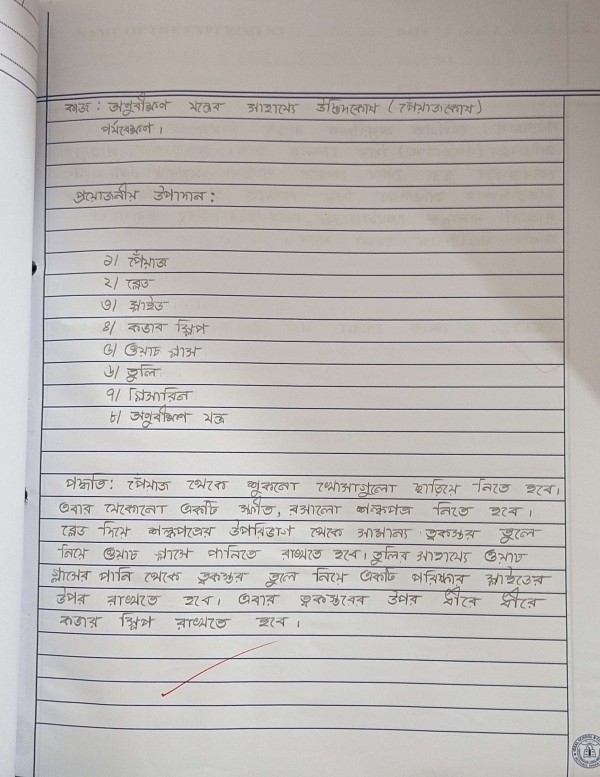 কাজ : অণুবীক্ষণ যন্ত্রের সাহায্যে উদ্ভিদকোষ (পেঁয়াজকোষ)
পর্যবেক্ষণ।
প্রয়োজনীয় উপাদান :
১। পেঁয়াজ
২। ব্লেড
৩। স্লাইড
৪। কভার স্লিপ
৫। ওয়াচ গ্লাস
৬। তুলি
৭। গ্লিসারিন
৮। অণুবীক্ষণ যন্ত্র
পদ্ধতি : পেঁয়াজ থেকে শুকনো খোসাগুলো ছাড়িয়ে নিতে হবে।
এবার যেকোনো একটি স্ফীত, রসালো শল্কপত্র নিতে হবে।
ব্লেড দিয়ে শল্কপত্রের উপরিভাগ থেকে সামান্য ত্বকস্তর তুলে
নিয়ে ওয়াচ গ্লাসে পানিতে রাখতে হবে। তুলির সাহায্যে ওয়াচ
গ্লাসের পানি থেকে ত্বকস্তর তুলে নিয়ে একটি পরিষ্কার স্লাইডের
উপর রাখতে হবে। এবার ত্বকস্তরের উপর ধীরে ধীরে
কভার স্লিপ রাখতে হবে।